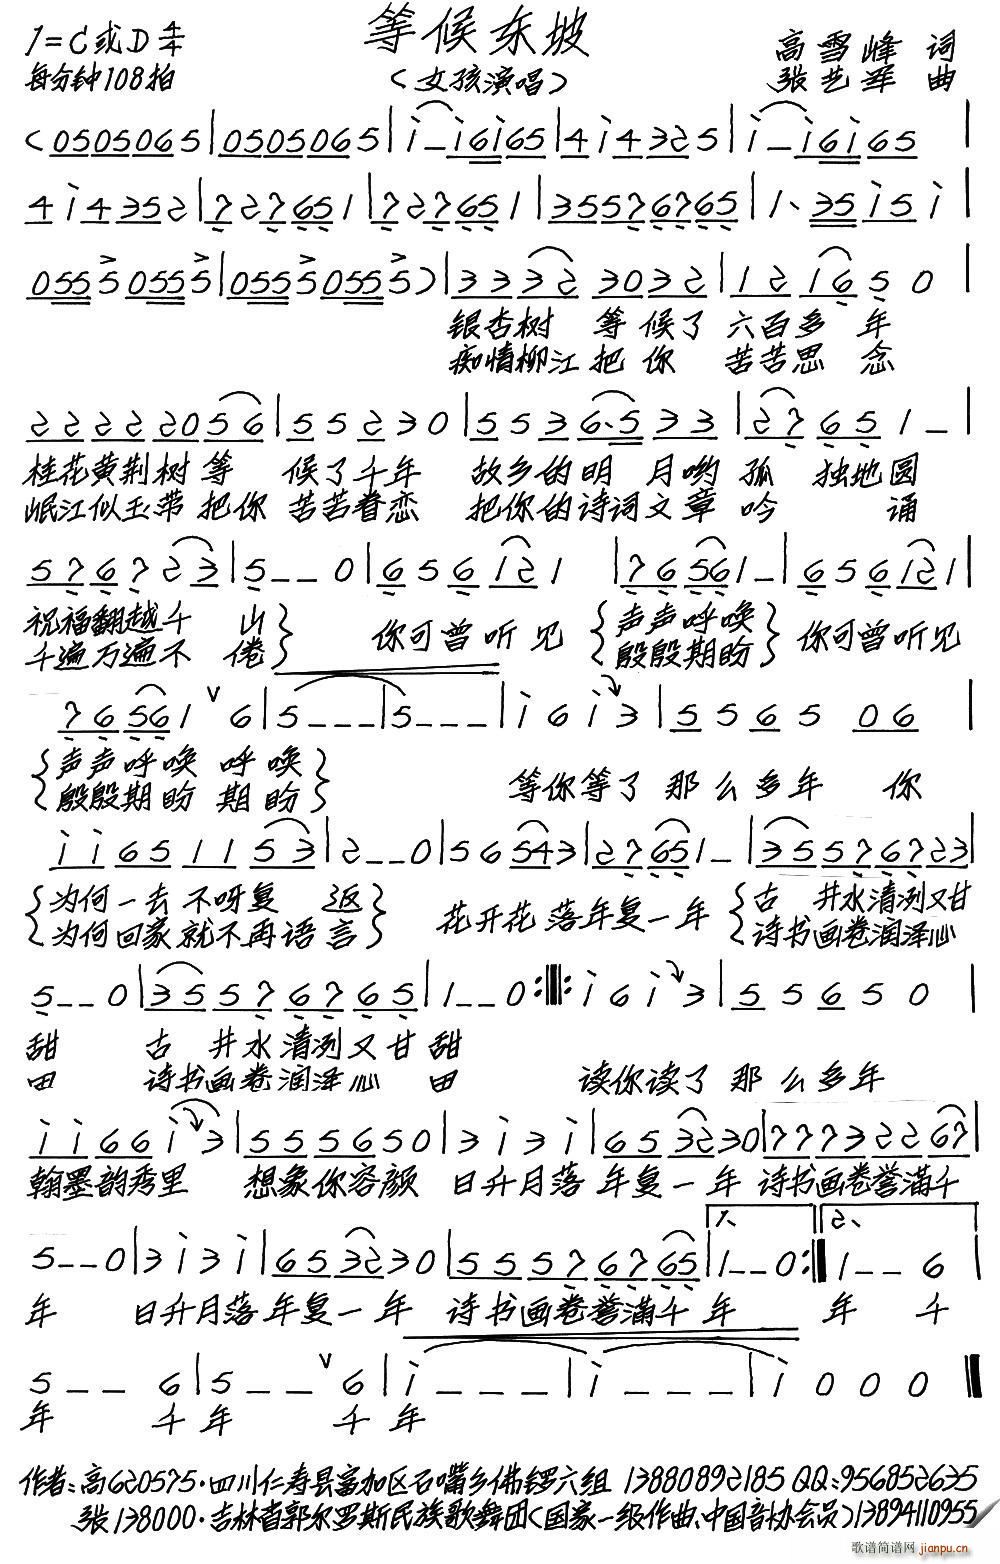 等候东坡
1=C或D 4/4
高雪峰 词
每分钟108拍
(女孩演唱)
张艺军 曲
(05050650 5|05050650 5|i-i6i65|4i4325|i-i6i65|
4i4352|727651|727651|35576765|1、35i5i|
0555055 5|0555055 5)|3332 3032|12165 0|
银杏树 等候了 六百多 年
痴情柳江 把你 苦苦思 念
22222056|55230|5536·533|27651-|
桂花黄荆树等 候了千年 故乡的明 月哟孤 独地圆
岷江似玉带 把你 苦苦眷恋 把你的诗词文章 吟 诵
576723|5--0|656121|76561-|656121|
祝福翻越千 山 你可曾听见 声声呼唤 你可曾听见
千遍万遍不 倦 殷殷期盼
76561 v 6|5---|5---|i6i3|5565 06|
声声呼唤 呼唤
殷殷期盼 期盼 等你等了 那么多年 你
ii651153|2--0|56543|27651-|35576723|
为何一去 不呀复 返 花开花 落年复一年 古 井水清洌又甘
为何回家就不再语言 诗书画卷润泽心
5--0|35576765|1--0:||:i6i3|55650|
甜 古 井水清洌又甘 甜
田 诗书画卷润泽心 田 读你读了 那么多年
ii66i3|555650|3i3i|653230|77732267|
翰墨韵秀里 想象你容颜 日升月落 年复一年 诗书画卷誉满千
1、 2、
5--0|3i3i|653230|55576765|1--0:|1--6|
年 日升月落 年复一年 诗书画卷誉满千 年 年 千
5--6|5---v6|i---|i---|i000||
年 千年 千年
作者:高620575·四川仁寿县富加区石嘴乡佛锣六组 13880892185 QQ:956852635
张138000·吉林省郭尔罗斯民族歌舞团(国家一级作曲、中国音协会员)13894110955
歌谱简谱网 jianpu.cn